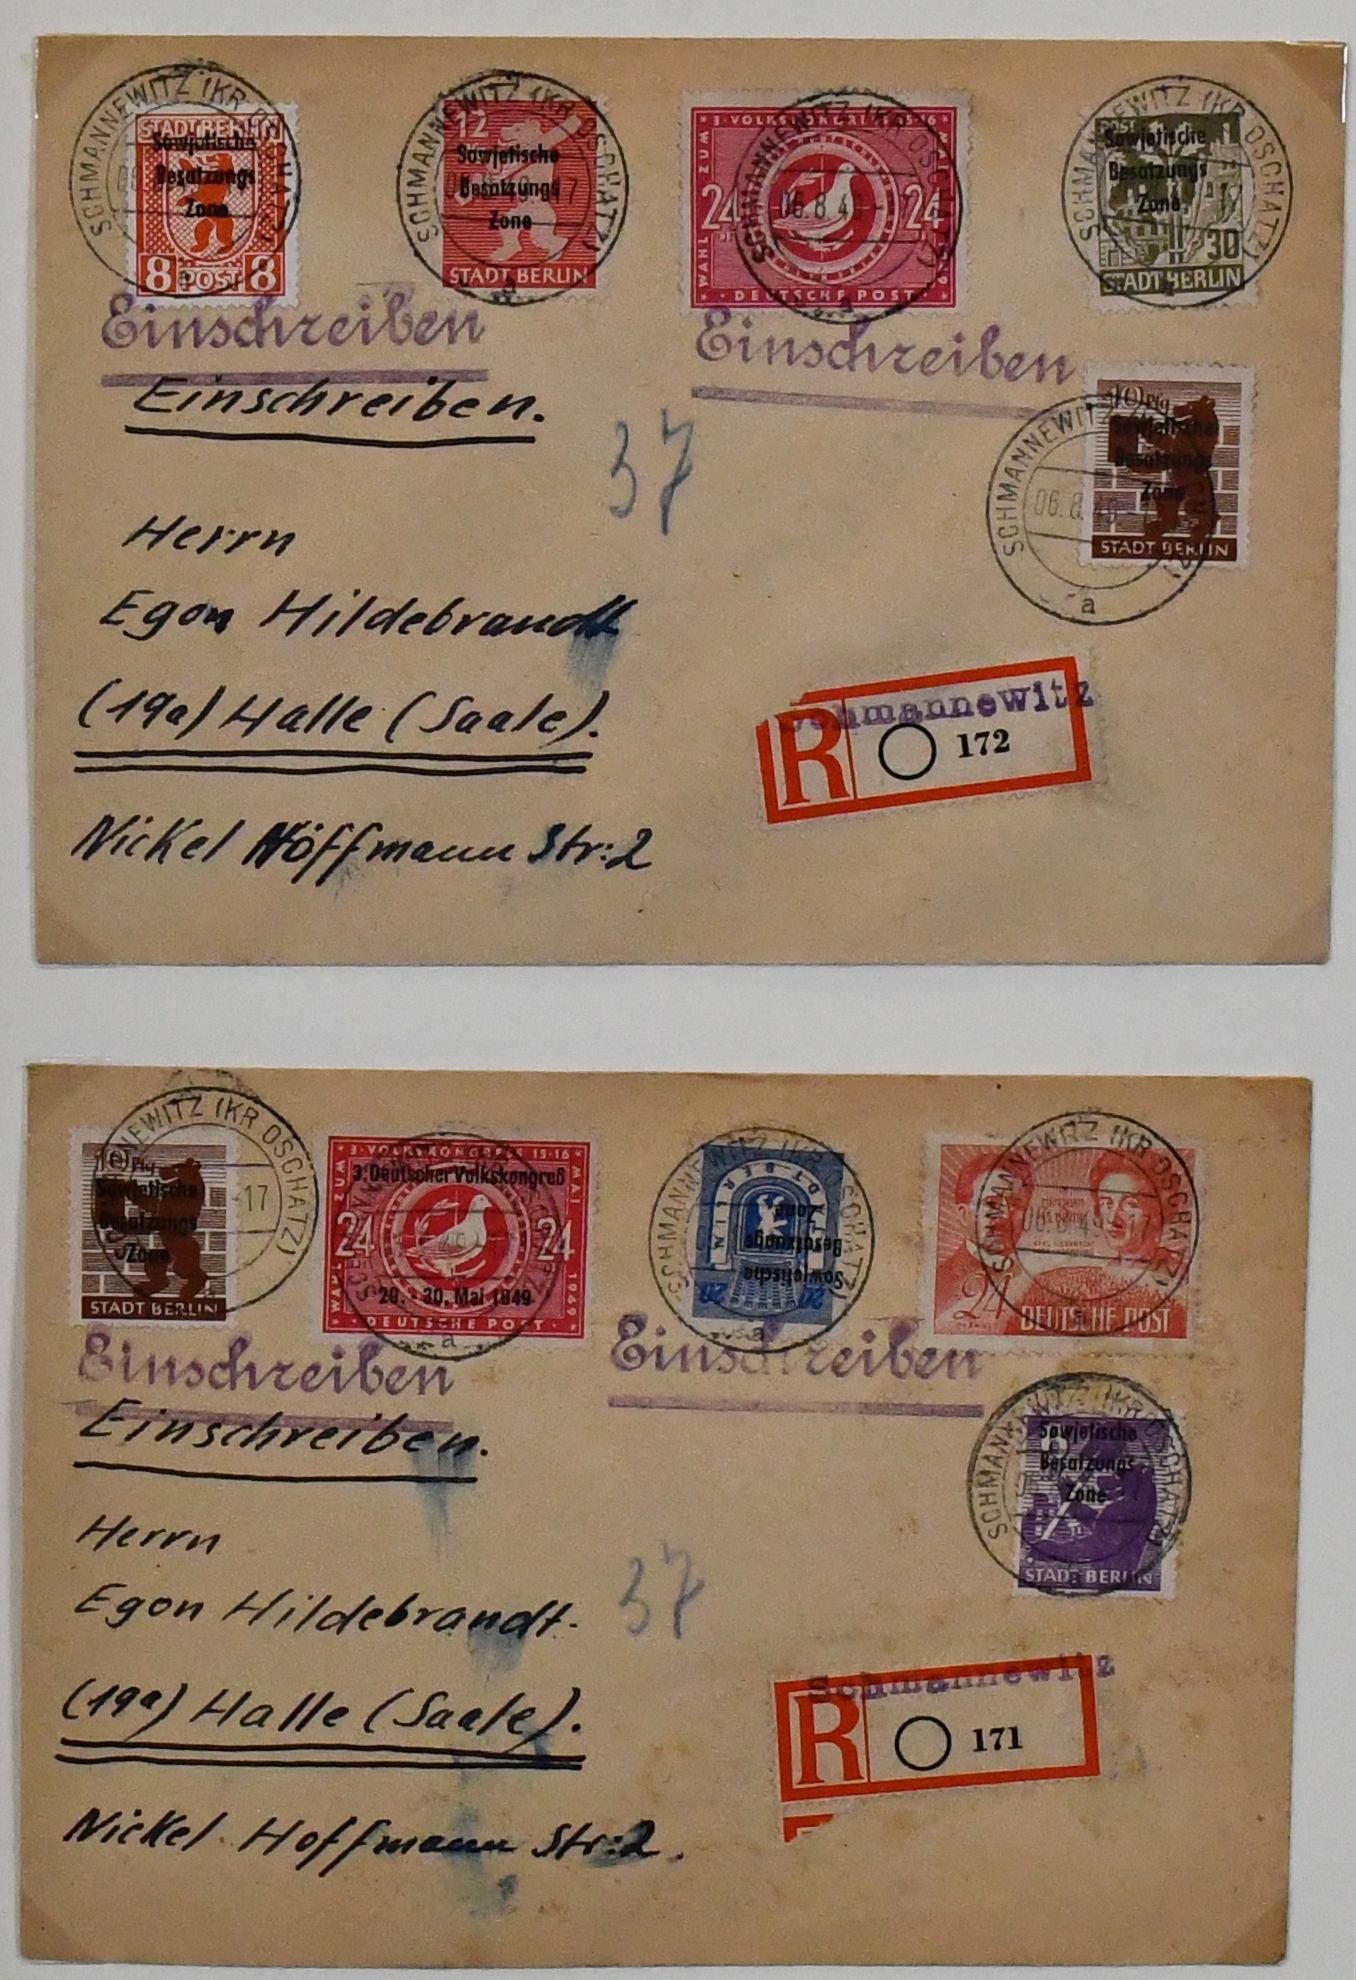 STADT BERLIN
Sowjetische
Besatzungs
Zone
8 POST 8
SCHMANNEWITZ (KR OSCHATZ)
a
12
Sowjetische
Besatzungs
Zone
STADT BERLIN
SCHMANNEWITZ (KR OSCHATZ)
a
3. VOLKSKONGRESS 15-16
MAI 1949
WAHL ZUM
24 24
DEUTSCHE POST
SCHMANNEWITZ (KR OSCHATZ)
06.8.49
a
POST
Sowjetische
Besatzungs
Zone
30
STADT BERLIN
SCHMANNEWITZ (KR OSCHATZ)
Einschreiben
Einschreiben
Einschreiben.
37
Sowjetische
Besatzungs
Zone
STADT BERLIN
SCHMANNEWITZ
06.8.49
a
Herrn
Egon Hildebrandt
(19a) Halle (Saale).
Schmannewitz
R 172
Nickel Höffmann Str:2
Sowjetische
Besatzungs
Zone
STADT BERLIN
SCHMANNEWITZ (KR OSCHATZ)
-17
3. VOLKSKONGRESS 15-16
MAI 1949
WAHL ZUM
3. Deutscher Volkskongreß
24 24
29.-30. Mai 1949
DEUTSCHE POST
a
STADT BERLIN
Sowjetische
Besatzungs
Zone
20 20
SCHMANNEWITZ (KR OSCHATZ)
a
24 DEUTSCHE POST
SCHMANNEWITZ (KR OSCHATZ)
Einschreiben
Einschreiben
Einschreiben.
Sowjetische
Besatzungs
Zone
STADT BERLIN
SCHMANNEWITZ (KR OSCHATZ)
Herrn
37
Egon Hildebrandt.
(19a) Halle (Saale).
Schmannewitz
R 171
Nickel Hoffmann Str:2.